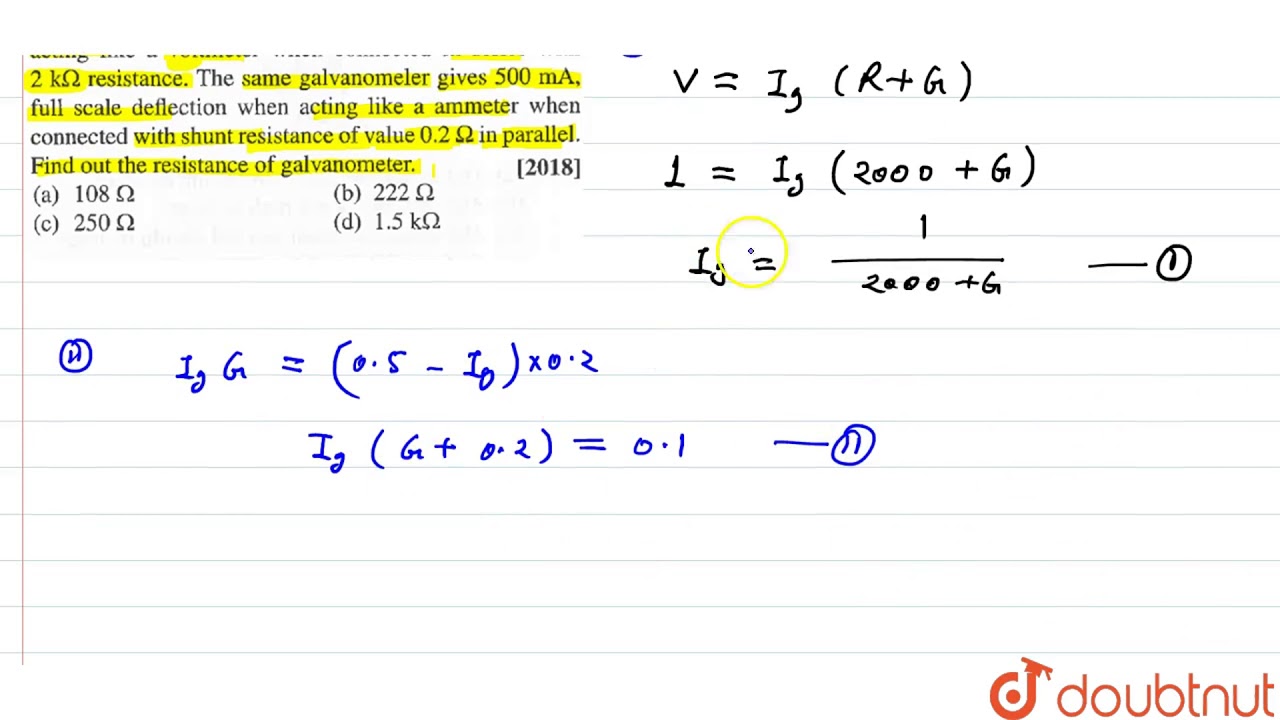 acting like a voltmeter when connected in series with
2 kΩ resistance. The same galvanometer gives 500 mA,
full scale deflection when acting like a ammeter when
connected with shunt resistance of value 0.2 Ω in parallel.
Find out the resistance of galvanometer. [2018]
(a) 108 Ω (b) 222 Ω
(c) 250 Ω (d) 1.5 kΩ
V = Ig (R+G)
1 = Ig (2000 + G)
Ig = 1 / 2000 + G — I
II Ig G = (0.5 - Ig) × 0.2
Ig (G + 0.2) = 0.1 — II
doubtnut